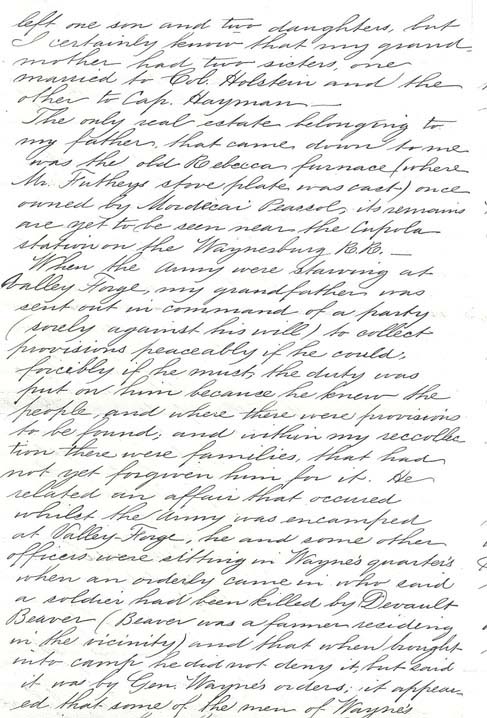 left one son and two daughters, but
I certainly know that my grand-
mother had two sisters, one
married to Col. Holstein and the
other to Cap. Hayman —
The only real estate belonging to
my father, that came down to me
was the old Rebecca furnace (where
Mr. Futheys stove plate was cast) once
owned by Mordecai Peassol, its remains
are yet to be seen near the Cupola
station on the Waynesburg R.R. —
When the Army were starving at
Valley Forge, my grandfather was
sent out in command of a party
(sorely against his will) to collect
provisions peaceably if he could,
forcibly if he must, the duty was
put on him because he knew the
people, and where there were provisions
to be found, and within my reccollec
tion there were families, that had
not yet forgiven him for it. He
related an affair that occured
whilst the Army was encamped
at Valley-Forge, he and some other
officers were sitting in Wayne's quarters
when an orderly came in who said
a soldier had been killed by Devault
Beaver (Beaver was a farmer residing
in the vicinity) and that when brought
into camp he did not deny it, but said
it was by Gen. Wayne's orders; it appear-
ed that some of the men of Wayne's